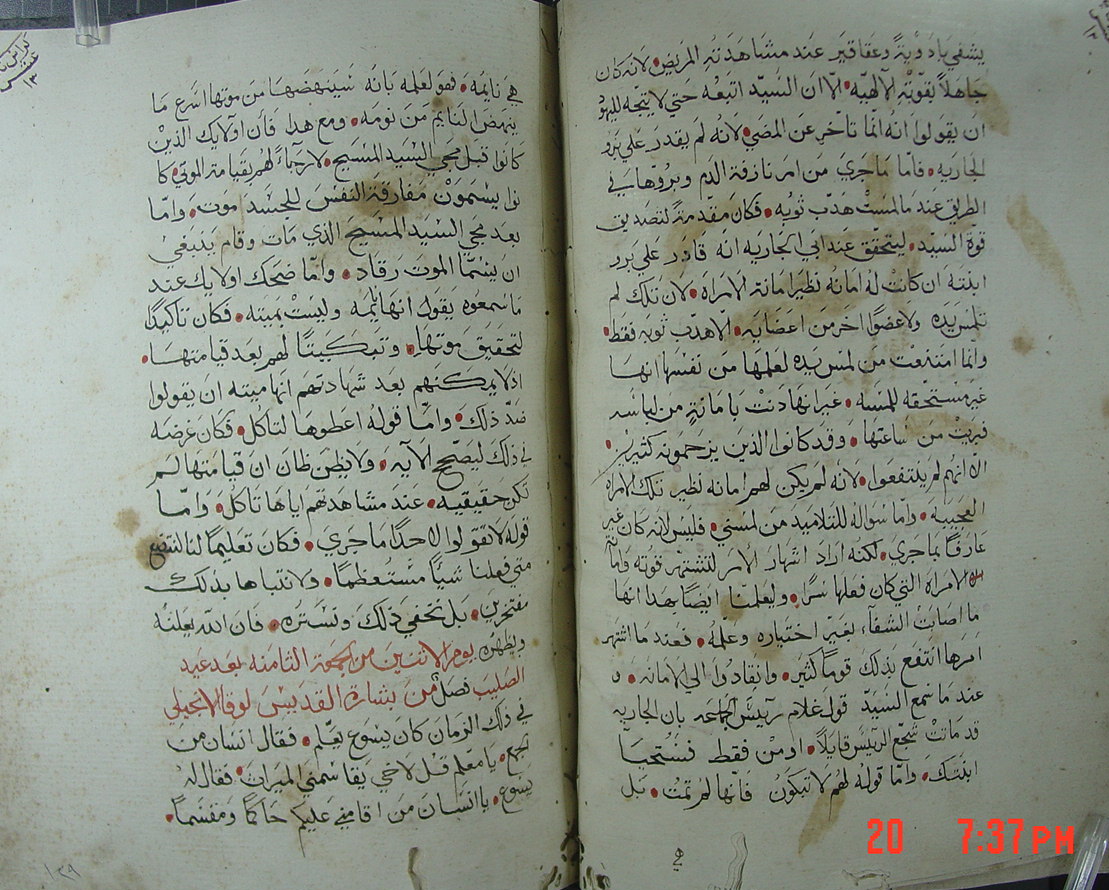 يشفي بادوية وعقاقير عند مشاهدته المريض • لانه كان
جاهلاً بقوته الالهية • الا ان السيد اتبعه حتي لا يتجه لليهود
ان يقولوا انه انما تاخر عن المضي • لانه لم يقدر علي برو
الجاريه • فاما ما جري من امر نازفة الدم وبروها في
الطريق عند ما لمست هدب ثوبه • فكان مقدمة لتصديق
قوة السيد • ليتحقق عند ابي الجاريه انه قادر علي برو
ابنته ان كانت له امانه نظير امانة الامراه • لان تلك لم
تلمس يده ولا عضوا اخر من اعضايه • الا هدب ثوبه فقط •
وانما امتنعت من لمس يده لعلمها من نفسها انها
غير مستحقه للمسه • غير انها دنت بامانة من لباسه
فبريت من ساعتها • وقد كانوا الذين يزحمونه كثيرين •
الا انهم لم ينتفعوا • لانه لم يكن لهم امانه نظير تلك الامراه
العجيبه • واما سواله للتلاميذ من لمسني • فليس لانه كان غير
عارفا بما جري • لكنه اراد اشهار الامر لتشتهر قوته
الامراه التي كان فعلها سرا • وليعلمنا ايضا بهذا انها
ما اصابت الشفاء بغير اختياره وعلمه • فعند ما اشتهر
امرها انتفع بذلك قوما كثير • وانقادوا الي الامانه • و
عند ما سمع السيد قول غلام رييس الجماعه بان الجاريه
قد ماتت شجع الرييس قايلا • اومن فقط فستحيا
ابنتك • واما قوله لهم لا تبكون فانها لم تمت • بل
هي نايمه • فهو لعلمه بانه سينهضها من موتها اسرع ما
ينهض النايم من نومه • ومع هذا فان اولايك الذين
كانوا قبل مجي السيد المسيح • لا رجاء لهم بقيامة الموتي • كا
نوا يسمون مفارقة النفس للجسد موت • واما
بعد مجي السيد المسيح الذي مات وقام ينبغي
ان يسما الموت رقاد • واما ضحك اولايك عند
ما سمعوه يقول انها نايمه وليست بميته • فكان تاكيدا
لتحقيق موتها • وتبكيتا لهم بعد قيامتها •
اذ لا يمكنهم بعد شهادتهم انها ميته ان يقولوا
ضد ذلك • واما قوله اعطوها لتاكل • فكان غرضه
في ذلك ليصحح الايه • ولا يظن ظان ان قيامتها لم
تكن حقيقيه • عند مشاهدتهم اياها تاكل • واما
قوله لا تقولوا لاحد ما جري • فكان تعليما لنا
متي فعلنا شيا مستعظما • ولا نتباها بذلك
مفتخرين • بل نخفي ذلك ونستره • فان الله يعلنه
ويظهره يوم الاثنين من الجمعة الثامنه بعد عيد
الصليب فصل من بشارة القديس لوقا الانجيلي
في ذلك الزمان كان يسوع يعلم • فقال انسان من
الجمع • يا معلم قل لاخي يقاسمني الميراث • فقال له
يسوع • يا انسان من اقامني عليكم حاكما ومقسما •
١٣٩
20 7:37 PM